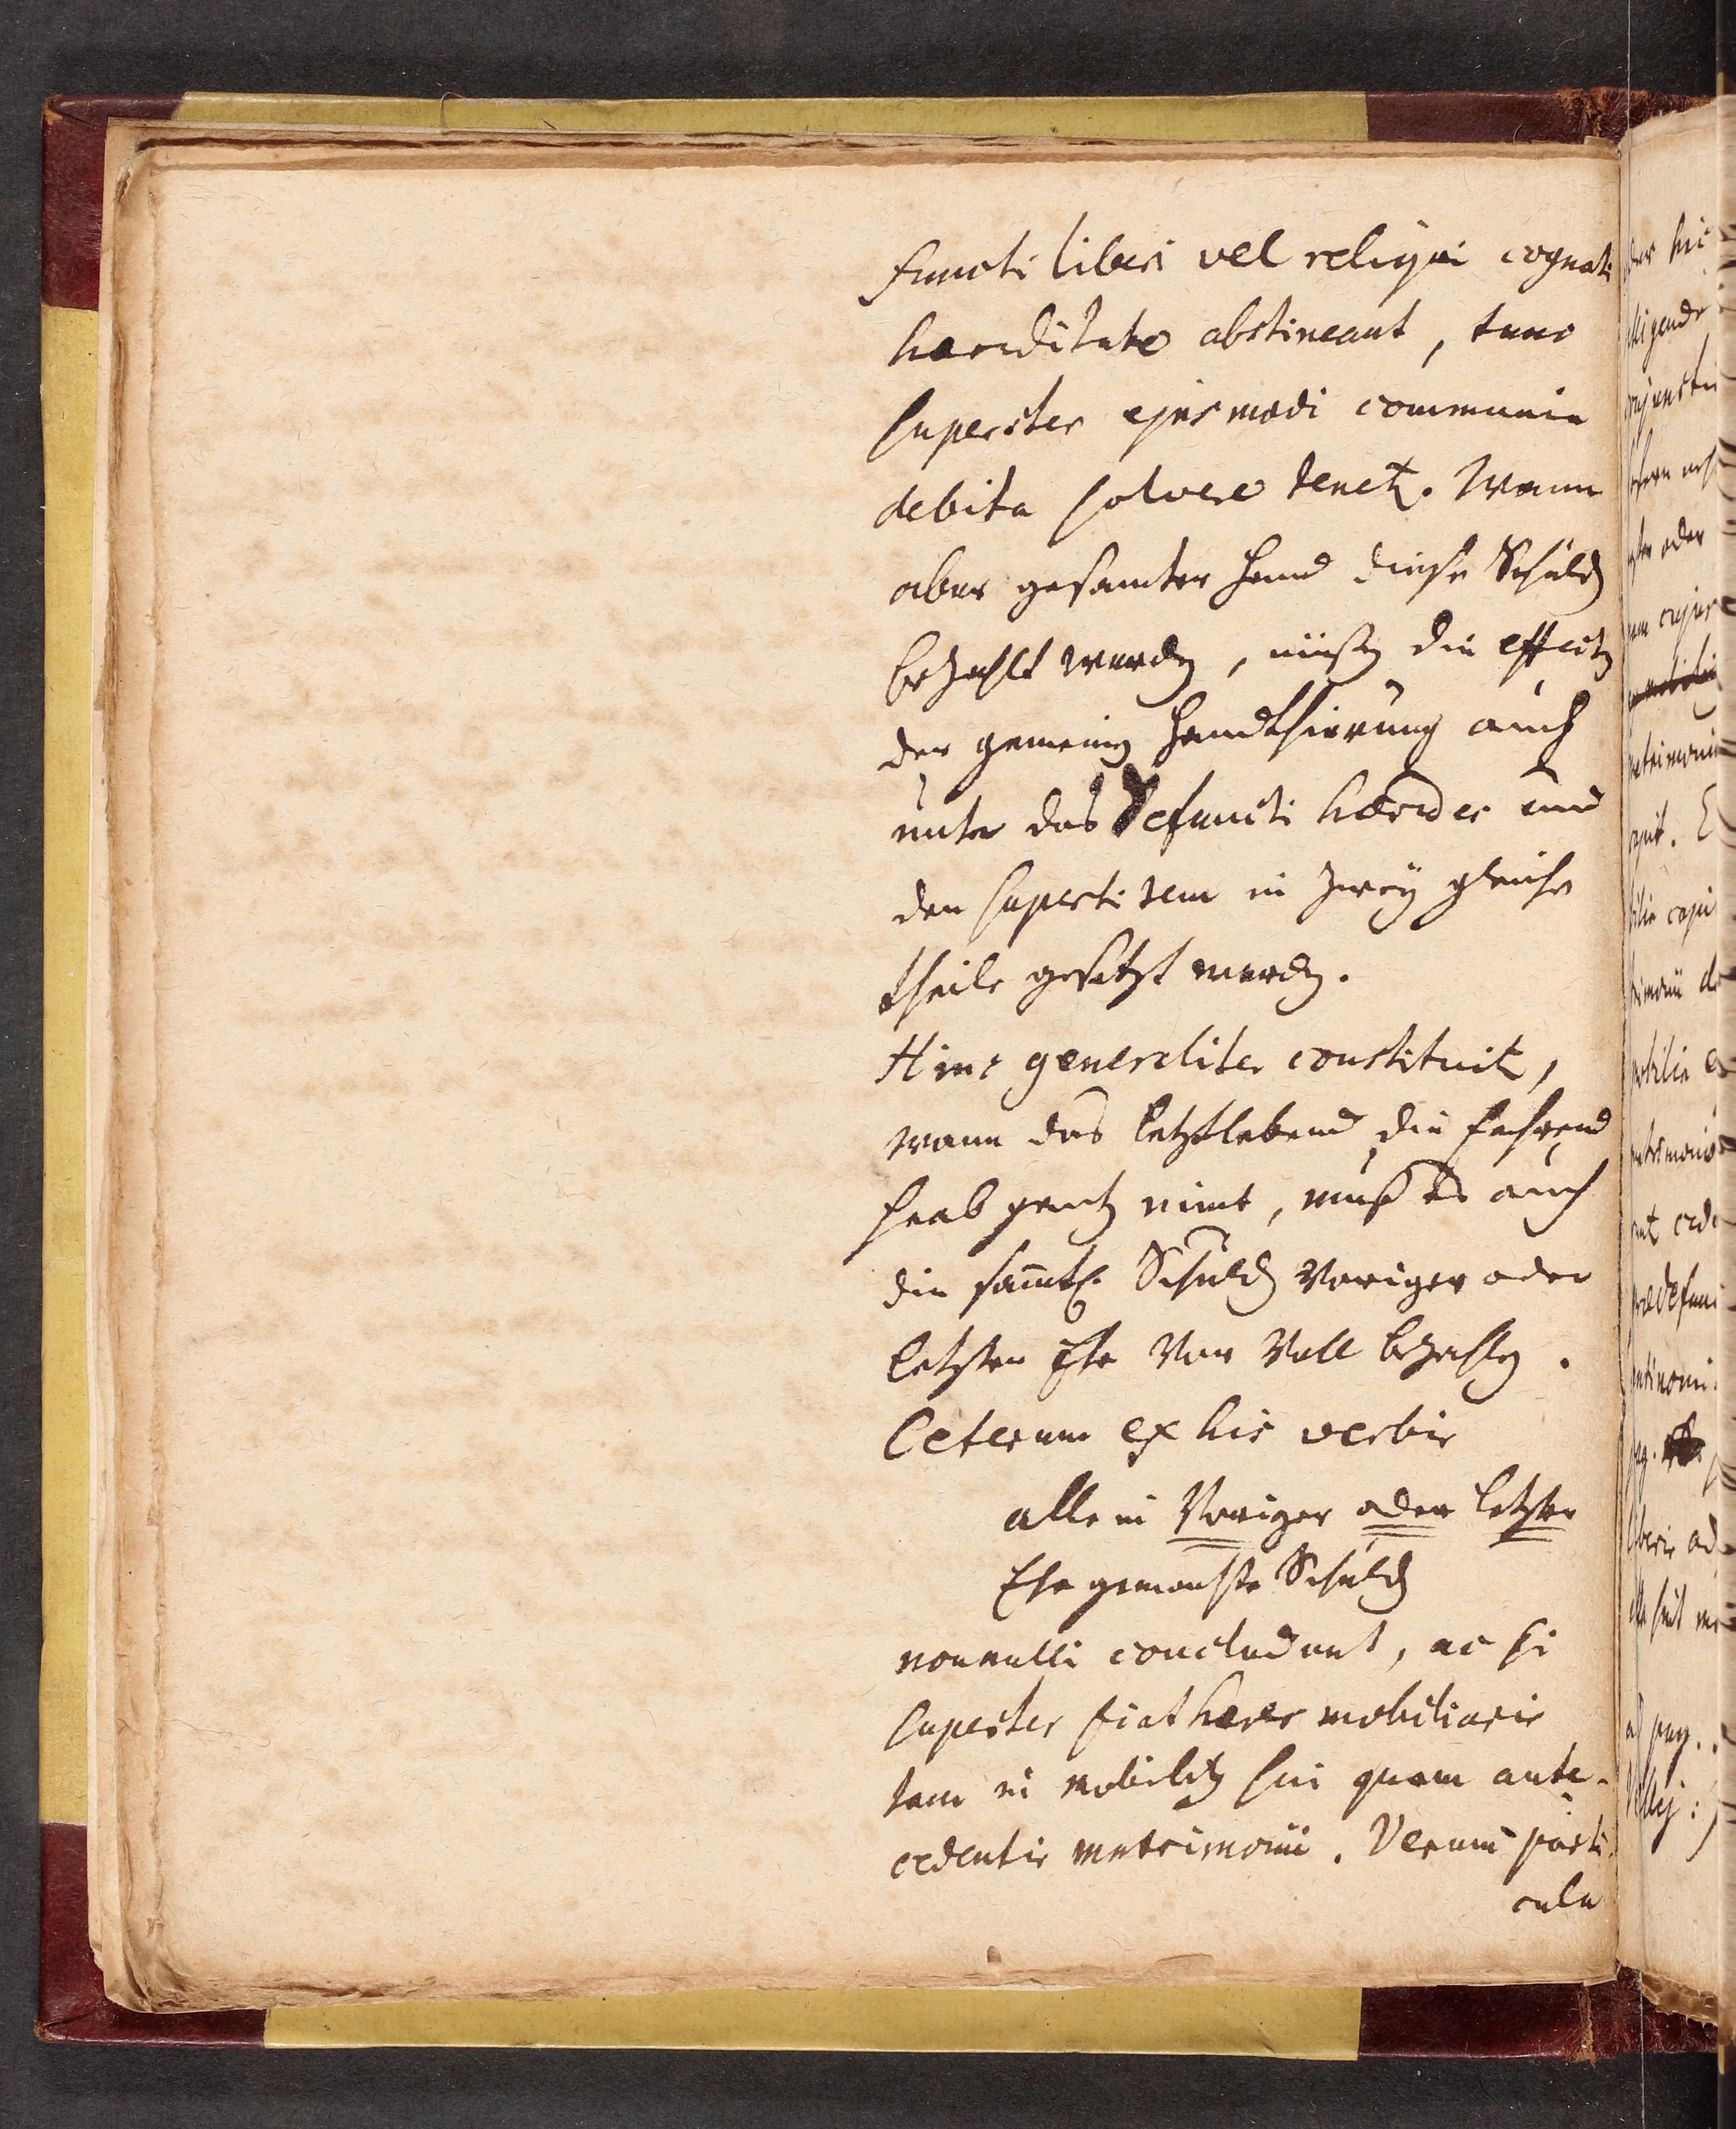 functi liberi vel reliqui cognati
haereditate abstineant, tunc
superstes ejusmodi communia
debita solvere tenetr. Wann
aber gesamter Hand diese Schuldẽ
bezahlt werdẽ, müßẽ die effectẽ
der gemeinẽ Handthierung auch
unter das Defuncti haeredes und
den superstitem in zwey gleiche
theile gesetzt werdẽ.
Hinc generaliter constituitr,
wann das letztlebend die fahrend
haab gantz nimt, muß es auch
die sam̃tl. Schuldẽ voriger oder
letzter Ehe vor voll bezahlẽ.
Ceterum ex his verbis
alle in voriger oder letzter
Ehe gemachte Schuldẽ
nonnulli concludunt, ac si
superstes fiat haeres mobiliaris
tam in mobilibus sui quam ante-
cedentis matrimonii. Verum parti-
cula